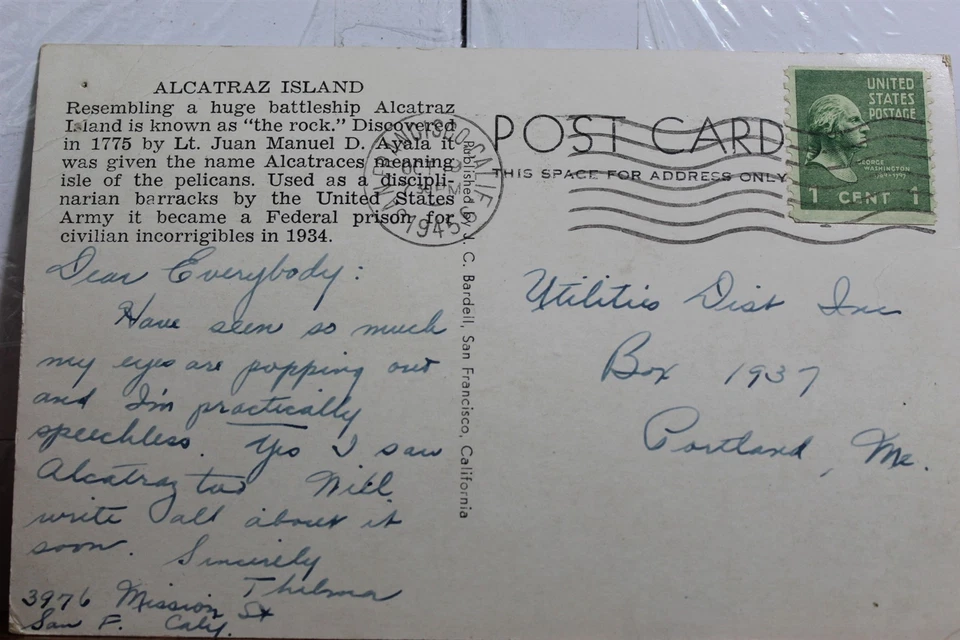 ALCATRAZ ISLAND
Resembling a huge battleship Alcatraz
Island is known as "the rock." Discovered
in 1775 by Lt. Juan Manuel D. Ayala it
was given the name Alcatraces meaning
isle of the pelicans. Used as a discipli-
narian barracks by the United States
Army it became a Federal prison for
civilian incorrigibles in 1934.
Dear Everybody:
Have seen so much
my eyes are popping out
and I'm practically
speechless. Yes I saw
Alcatraz too Will
write all about it
soon.
Sincerely
Thelma
3976 Mission St
San F. Calif.
Published by J. C. Bardell, San Francisco, California
SAN FRANCISCO, CALIF.
OCT
PM
1945
POST CARD
THIS SPACE FOR ADDRESS ONLY
UNITED
STATES
POSTAGE
GEORGE
WASHINGTON
1789-1797
1 CENT 1
Utilities Dist Inc
Box 1937
Portland, Me.